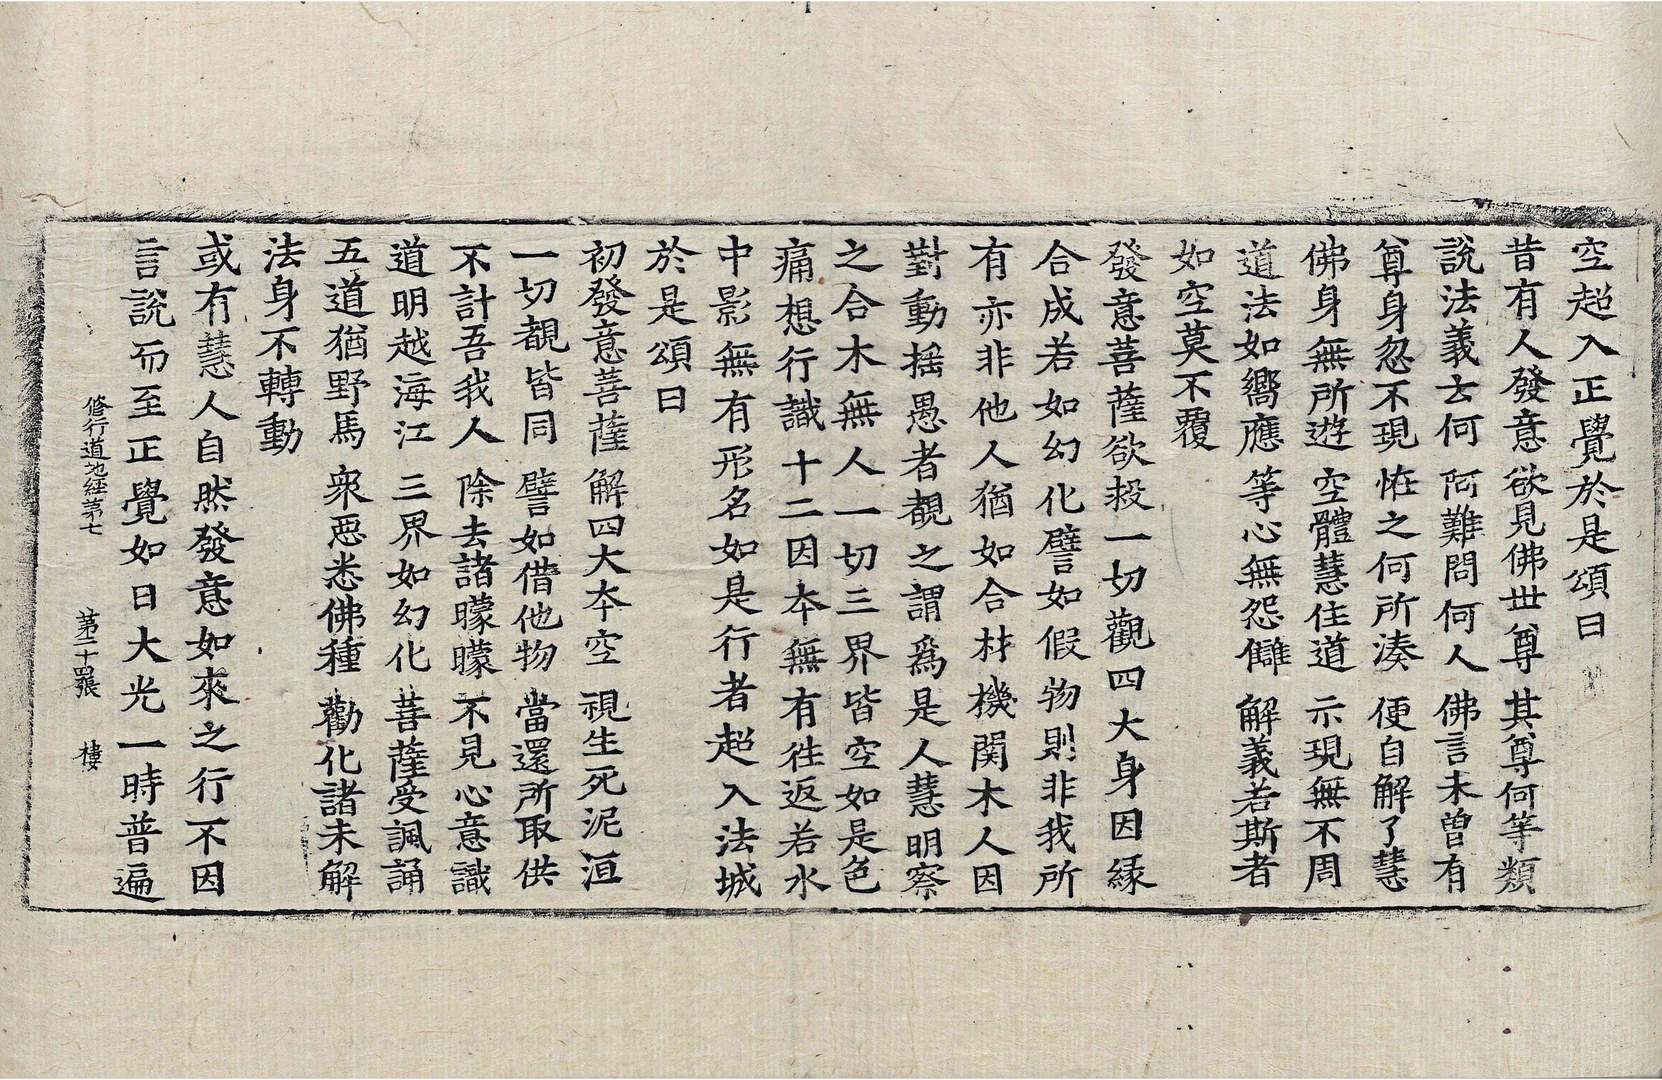 空超入正覺於是頌曰
昔有人發意欲見佛世尊 其尊何等類
說法義云何 阿難問何人 佛言未曾有
尊身忽不現 恠之何所湊 便自解了慧
佛身無所遊 空體慧住道 示現無不周
道法如嚮應 等心無怨讎 解義若斯者
如空莫不覆
發意菩薩欲投一切觀四大身因緣
合成若如幻化譬如假物則非我所
有亦非他人猶如合材機関木人因
對動揺愚者覩之謂爲是人慧明察
之合木無人一切三界皆空如是色
痛想行識十二因夲無有往返若水
中影無有形名如是行者超入法城
於是頌曰
初發意菩薩 解四大夲空 視生死泥洹
一切覩皆同 譬如借他物 當還所取供
不計吾我人 除去諸曚曚 不見心意識
道明越海江 三界如幻化 菩薩受諷誦
五道猶野馬 衆惡悉佛種 勸化諸未解
法身不轉動
或有慧人自然發意如來之行不因
言說而至正覺如日大光一時普遍
脩行道地經第七 第二十四張 樓